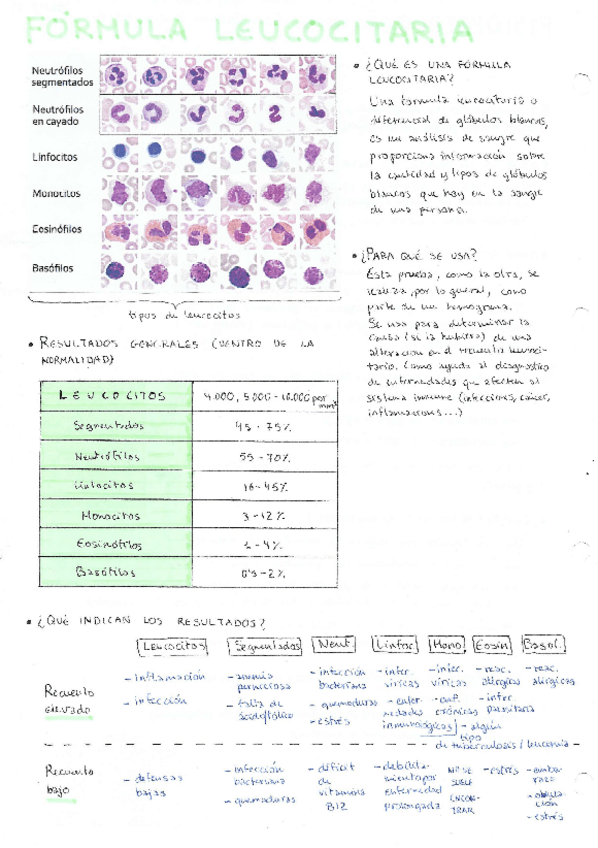 FÓRMULA LEUCOCITARIA
Neutrófilos
segmentados
Neutrófilos
en cayado
Linfocitos
Monocitos
Eosinófilos
Basófilos
tipos de leucocitos
• ¿QUÉ ES UNA FÓRMULA
LEUCOCITARIA?
Una fórmula leucocitaria o
diferencial de glóbulos blancos,
es un análisis de sangre que
proporciona información sobre
la cantidad y tipos de glóbulos
blancos que hay en la sangre
de una persona.
• ¿PARA QUÉ SE USA?
Esta prueba, como la otra, se
realiza, por lo general, como
parte de un hemograma.
Se usa para determinar la
causa (si la hubiera) de una
alteración en el recuento leucoci-
tario. Como ayuda al diagnostico
de enfermedades que afecten al
sistema inmune (infecciones, cáncer,
inflamaciones...)
• RESULTADOS GENERALES (DENTRO DE LA
NORMALIDAD)
LEUCOCITOS 4.000, 5.000 - 10.000 por mm³
Segmentados 45 - 75%
Neutrófilos 55 - 70%
Linfocitos 16 - 45%
Monocitos 3 - 12%
Eosinófilos 1 - 4%
Basófilos - 2%
• ¿QUÉ INDICAN LOS RESULTADOS?
Leucocitos Segmentados Neut. Linfoc. Mono Eosin Basof.
Recuento
elevado
- inflamación
- infección
- anemia
perniciosa
- falta de
ác. fólico
- infección
bacteriana
- quemaduras
- estrés
- infec.
víricas
- enfer-
medades
inmunológicas
- infec.
víricas
- enf.
crónicas
- algún
tipo
de tuberculosis / leucemia
- reac.
alérgicas
- infec.
parasitaria
- reac.
alérgicas
Recuento
bajo
- defensas
bajas
- infección
bacteriana
- quemaduras
- déficit
de
vitamina
B12
- debilita-
miento por
enfermedad
prolongada
NO SE
SUELE
ENCON-
TRAR
- estrés
- emba-
razo
- ovula-
ción
- estrés